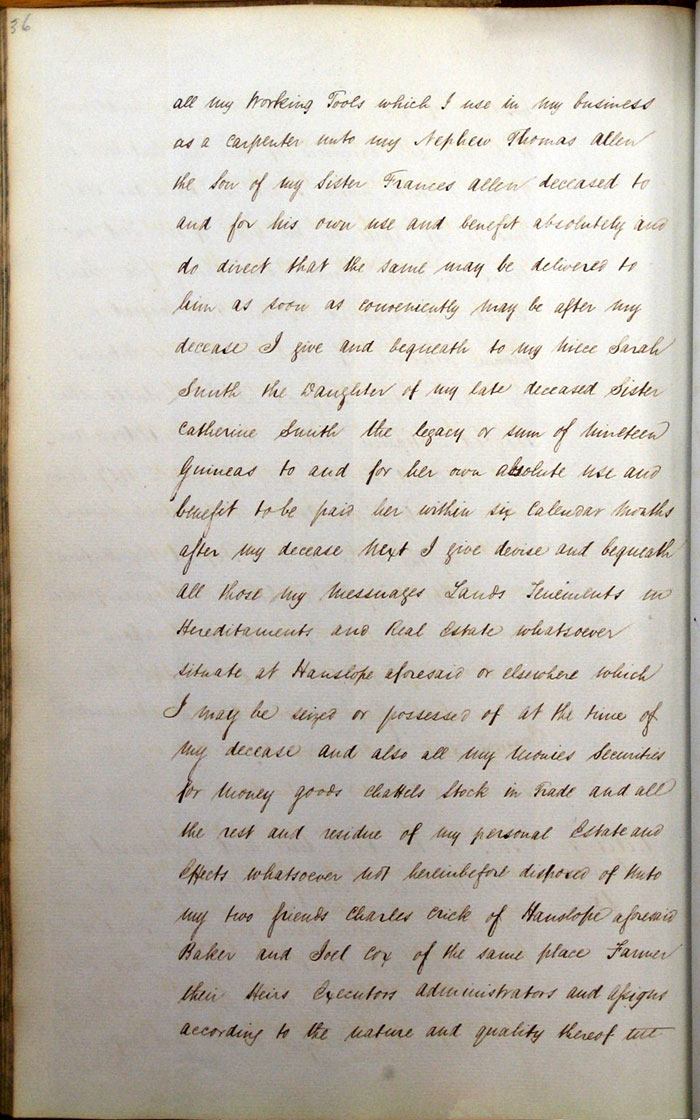 36
all my Working Tools which I use in my business
as a Carpenter unto my Nephew Thomas Allen
the Son of my Sister Frances Allen deceased to
and for his own use and benefit absolutely and
do direct that the same may be delivered to
him as soon as conveniently may be after my
decease I give and bequeath to my Niece Sarah
Smith the Daughter of my late deceased Sister
Catherine Smith the legacy or sum of Nineteen
Guineas to and for her own absolute use and
benefit to be paid her within six Calendar Months
after my decease Next I give devise and bequeath
all those my Messuages Lands Tenements
Hereditaments and Real Estate whatsoever
situate at Hanslope aforesaid or elsewhere which
I may be seized or possessed of at the time of
my decease and also all my Monies Securities
for Money goods Chattels Stock in Trade and all
the rest and residue of my personal Estate and
Effects whatsoever not hereinbefore disposed of Unto
my two friends Charles Crick of Hanslope aforesaid
Baker and Joel Cox of the same place Farmer
their Heirs Executors Administrators and Assigns
according to the nature and quality thereof